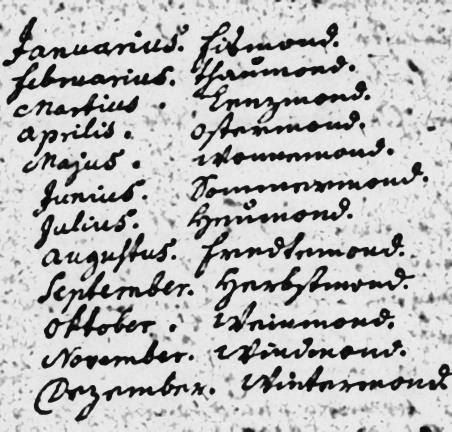 Januarius. Eismond.
Februarius. Thaumond.
Martius. Lenzmond.
Aprilis. Ostermond.
Majus. Wonnemond.
Junius. Sommermond.
Julius. Heumond.
Augustus. Erndtemond.
September. Herbstmond.
Oktober. Weinmond.
November. Windmond.
Dezember. Wintermond